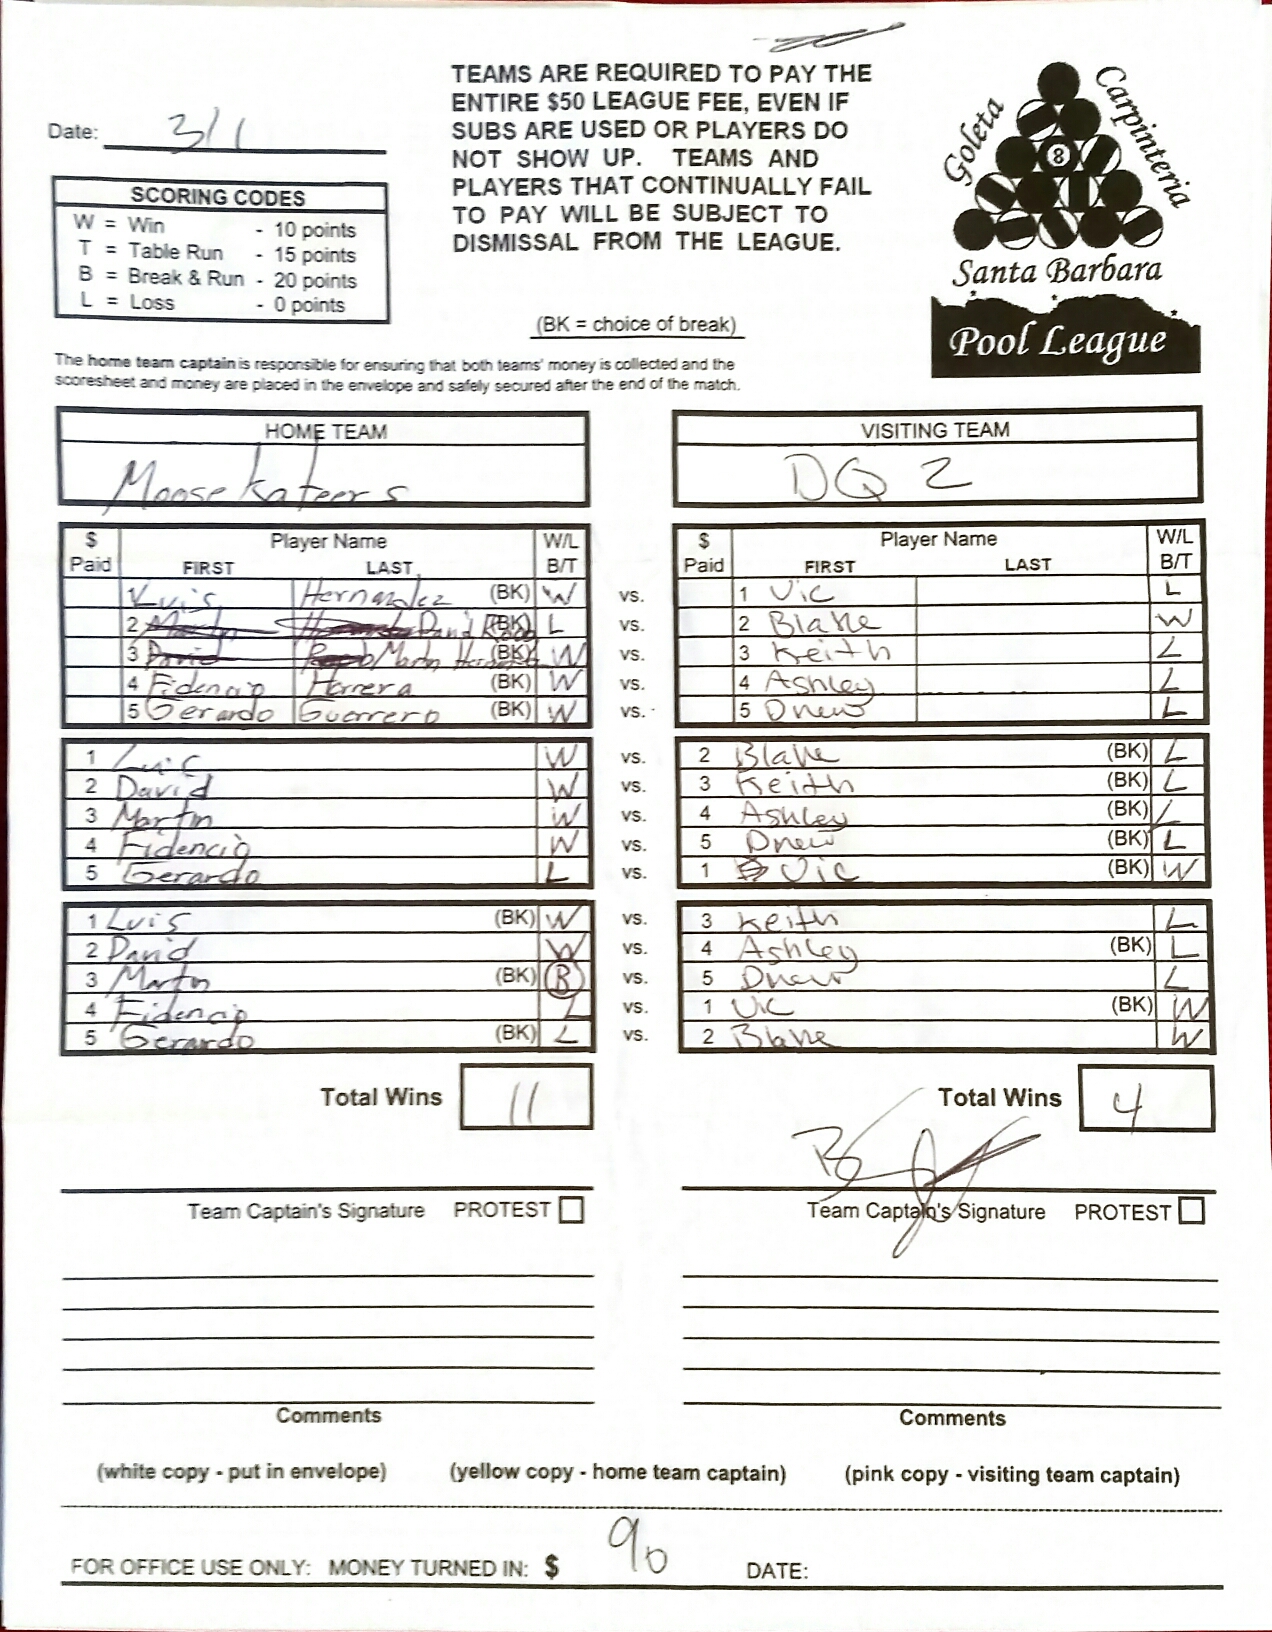 Date: 3/1
TEAMS ARE REQUIRED TO PAY THE
ENTIRE $50 LEAGUE FEE, EVEN IF
SUBS ARE USED OR PLAYERS DO
NOT SHOW UP. TEAMS AND
PLAYERS THAT CONTINUALLY FAIL
TO PAY WILL BE SUBJECT TO
DISMISSAL FROM THE LEAGUE.
(BK = choice of break)
Goleta
Carpinteria
8
Santa Barbara
Pool League
SCORING CODES
W = Win - 10 points
T = Table Run - 15 points
B = Break & Run - 20 points
L = Loss - 0 points
The home team captain is responsible for ensuring that both teams' money is collected and the
scoresheet and money are placed in the envelope and safely secured after the end of the match.
HOME TEAM VISITING TEAM
Moosekateers DQ 2
$ Paid Player Name FIRST LAST W/L B/T $ Paid Player Name FIRST LAST W/L B/T
1 Luis Hernandez (BK) W vs. 1 Vic L
2 Martin David (BK) L vs. 2 Blake W
3 David Martin (BK) W vs. 3 Keith L
4 Fidencio Herrera (BK) W vs. 4 Ashley L
5 Gerardo Guerrero (BK) W vs. 5 Drew L
1 Luis W vs. 2 Blake (BK) L
2 David W vs. 3 Keith (BK) L
3 Martin W vs. 4 Ashley (BK) L
4 Fidencio W vs. 5 Drew (BK) L
5 Gerardo L vs. 1 Vic (BK) W
1 Luis (BK) W vs. 3 Keith L
2 David W vs. 4 Ashley (BK) L
3 Martin (BK) B vs. 5 Drew L
4 Fidencio L vs. 1 Vic (BK) W
5 Gerardo (BK) L vs. 2 Blake W
Total Wins 11 Total Wins 4
Team Captain's Signature PROTEST Team Captain's Signature PROTEST
Comments Comments
(white copy - put in envelope) (yellow copy - home team captain) (pink copy - visiting team captain)
FOR OFFICE USE ONLY: MONEY TURNED IN: $ 90 DATE: